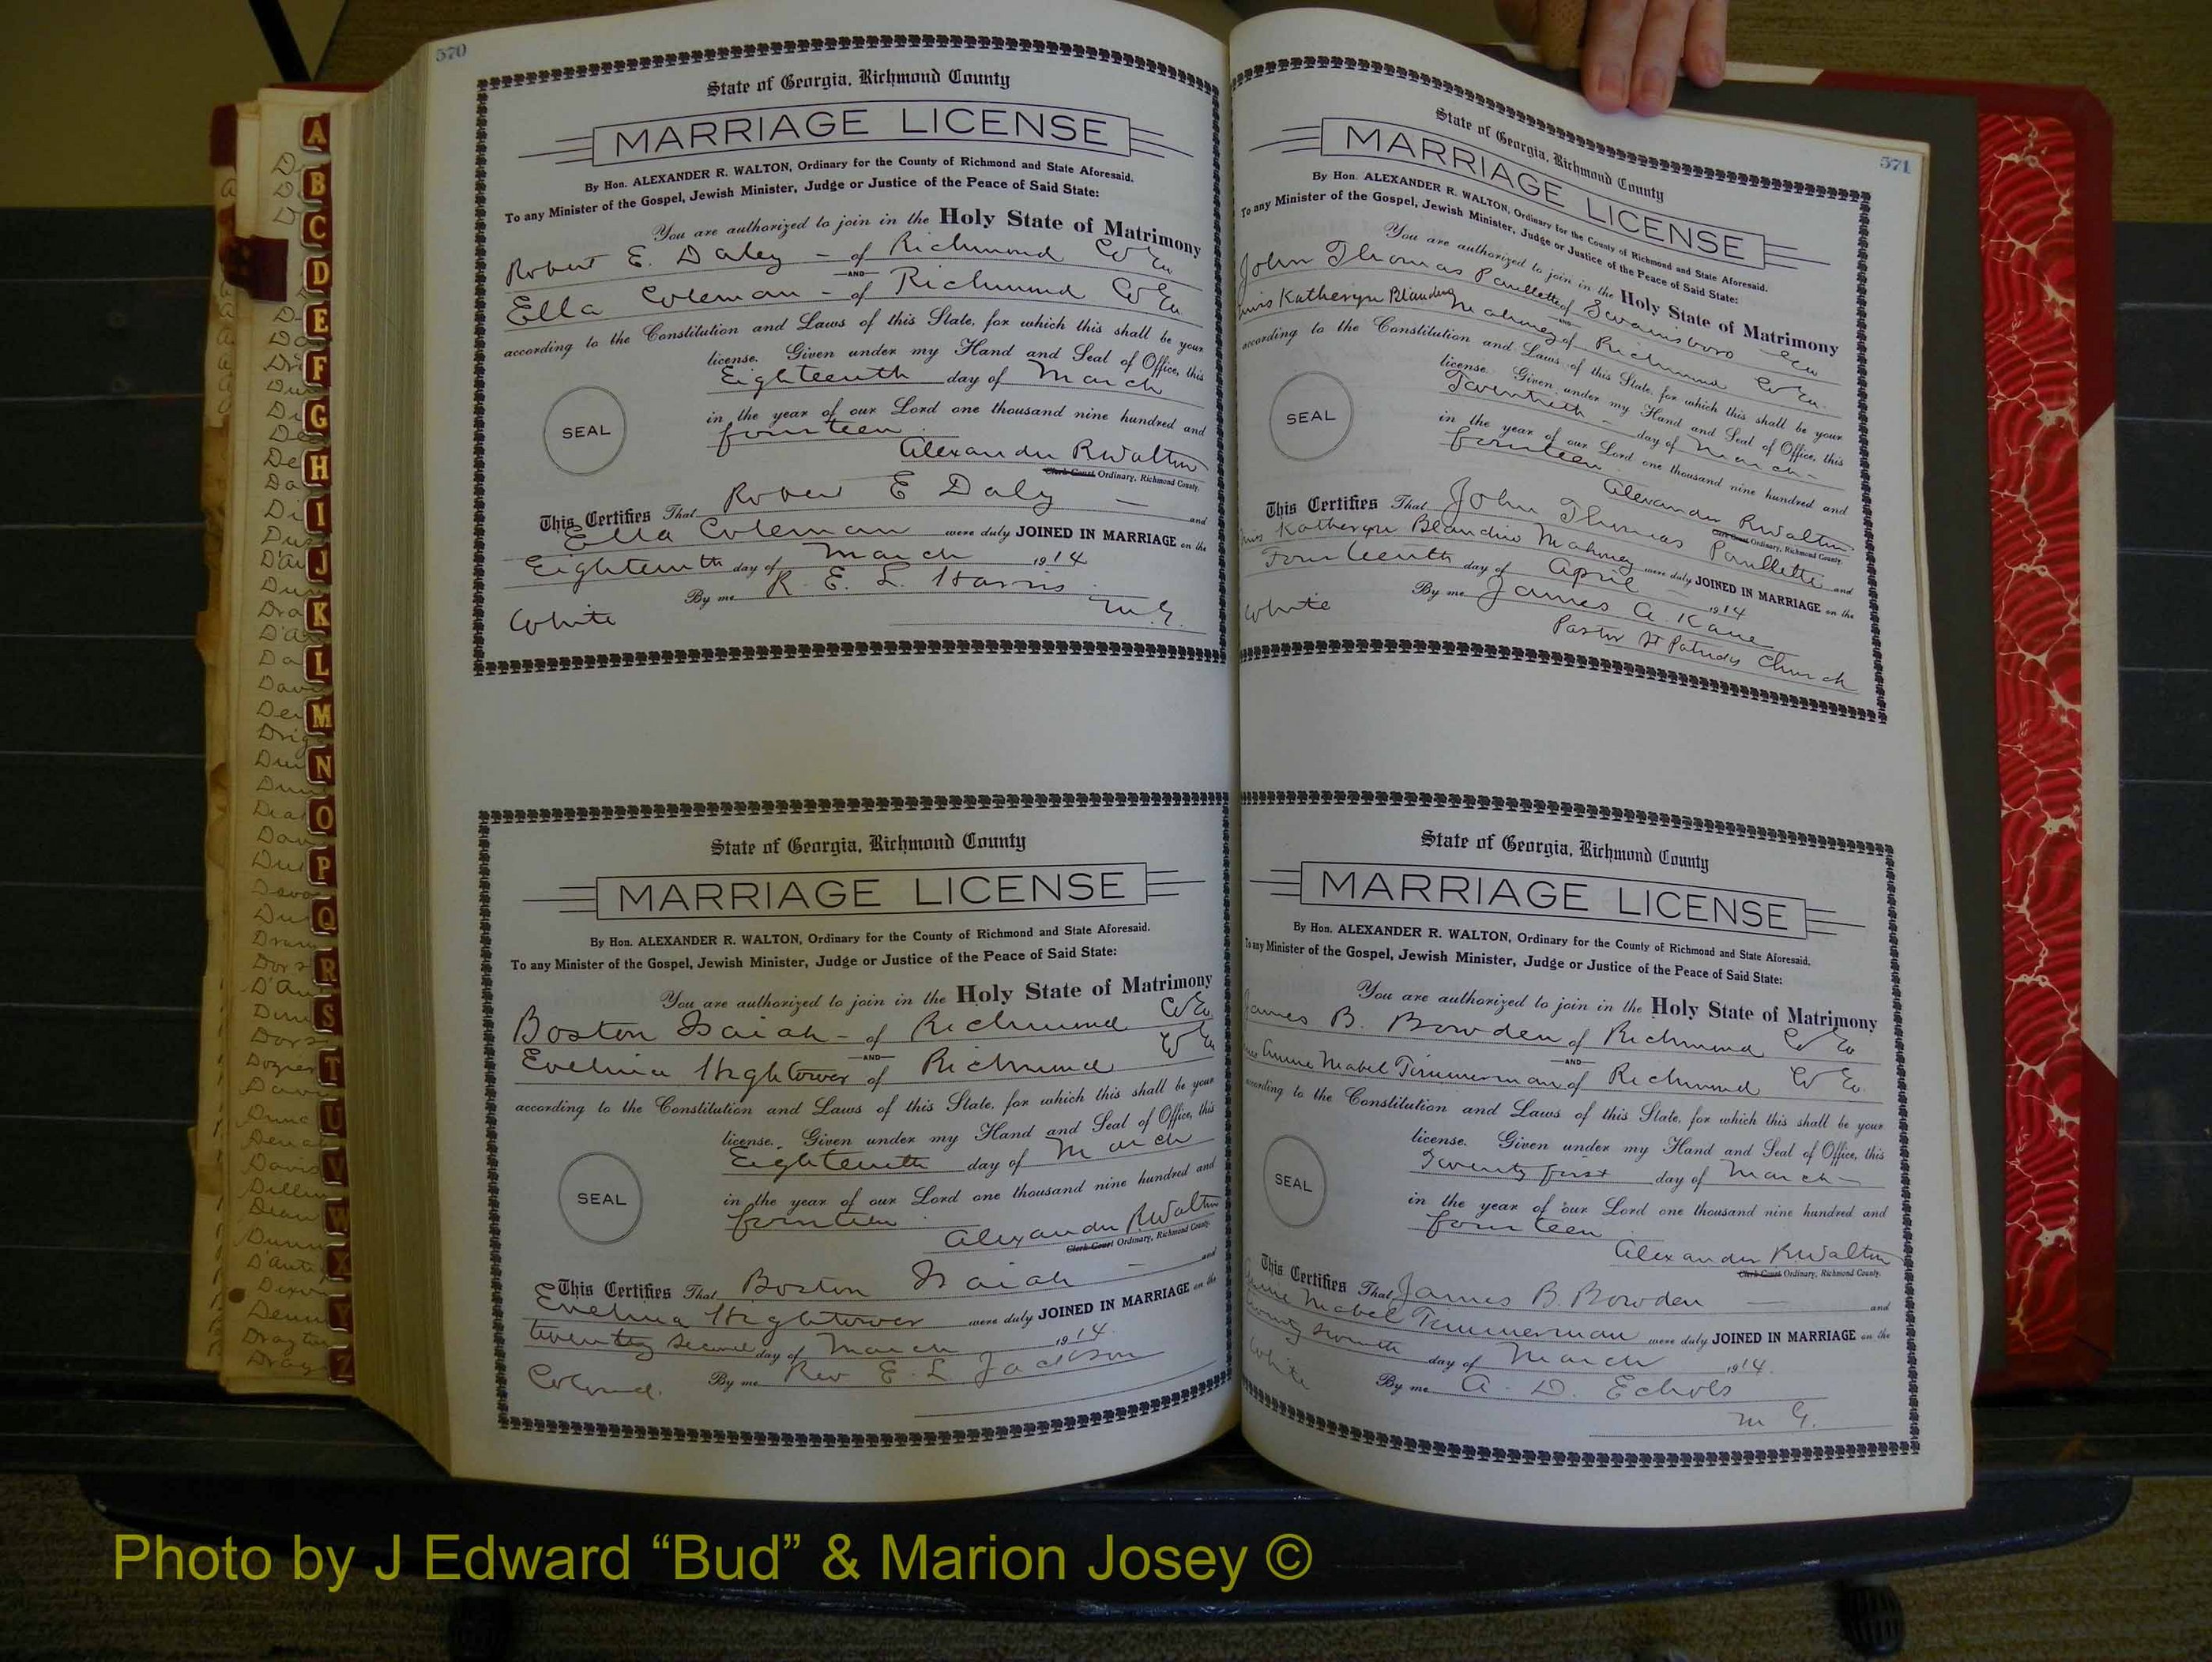 570
State of Georgia, Richmond County
MARRIAGE LICENSE
By Hon. ALEXANDER R. WALTON, Ordinary for the County of Richmond and State Aforesaid.
To any Minister of the Gospel, Jewish Minister, Judge or Justice of the Peace of Said State:
You are authorized to join in the Holy State of Matrimony
Robert E. Daley - of Richmond Co Ga
AND
Ella Coleman - of Richmond Co Ga
according to the Constitution and Laws of this State, for which this shall be your
license. Given under my Hand and Seal of Office, this
Eighteenth day of March
in the year of our Lord one thousand nine hundred and
fourteen
SEAL
Alexander R Walton
Clerk Court Ordinary, Richmond County.
This Certifies That Robert E Daly and
Ella Coleman were duly JOINED IN MARRIAGE on the
Eighteenth day of March 1914
By me R. E. L. Harris
White M.G.
State of Georgia, Richmond County
MARRIAGE LICENSE
By Hon. ALEXANDER R. WALTON, Ordinary for the County of Richmond and State Aforesaid.
To any Minister of the Gospel, Jewish Minister, Judge or Justice of the Peace of Said State:
You are authorized to join in the Holy State of Matrimony
Boston Isaiah - of Richmond Co Ga
AND
Evelina Hightower of Richmond Co Ga
according to the Constitution and Laws of this State, for which this shall be your
license. Given under my Hand and Seal of Office, this
Eighteenth day of March
in the year of our Lord one thousand nine hundred and
fourteen
SEAL
Alexander R Walton
Clerk Court Ordinary, Richmond County.
This Certifies That Boston Isaiah and
Evelina Hightower were duly JOINED IN MARRIAGE on the
twenty second day of March 1914.
By me Rev E. L. Jackson
Colored.
571
State of Georgia, Richmond County
MARRIAGE LICENSE
By Hon. ALEXANDER R. WALTON, Ordinary for the County of Richmond and State Aforesaid.
To any Minister of the Gospel, Jewish Minister, Judge or Justice of the Peace of Said State:
You are authorized to join in the Holy State of Matrimony
John Thomas Paullette of Swainsboro Ga
AND
Katheryn Blandine Mahoney of Richmond Co Ga.
according to the Constitution and Laws of this State, for which this shall be your
license. Given under my Hand and Seal of Office, this
Twentieth day of March
in the year of our Lord one thousand nine hundred and
fourteen
SEAL
Alexander R Walton
Clerk Court Ordinary, Richmond County.
This Certifies That John Thomas Paullette and
Katheryn Blandine Mahoney were duly JOINED IN MARRIAGE on the
Fourteenth day of April 1914
By me James A. Kane
White Pastor St Patricks Church
State of Georgia, Richmond County
MARRIAGE LICENSE
By Hon. ALEXANDER R. WALTON, Ordinary for the County of Richmond and State Aforesaid.
To any Minister of the Gospel, Jewish Minister, Judge or Justice of the Peace of Said State:
You are authorized to join in the Holy State of Matrimony
James B. Bowden of Richmond Co Ga
AND
Annie Mabel Timmerman of Richmond Co Ga.
according to the Constitution and Laws of this State, for which this shall be your
license. Given under my Hand and Seal of Office, this
Twenty first day of March
in the year of our Lord one thousand nine hundred and
fourteen
SEAL
Alexander R Walton
Clerk Court Ordinary, Richmond County.
This Certifies That James B. Bowden and
Annie Mabel Timmerman were duly JOINED IN MARRIAGE on the
twenty seventh day of March 1914.
By me A. D. Echols
White M G.
A
B
C
D
E
F
G
H
I
J
K
L
M
N
O
P
Q
R
S
T
U
V
W
X
Y
Z
Photo by J Edward “Bud” & Marion Josey ©